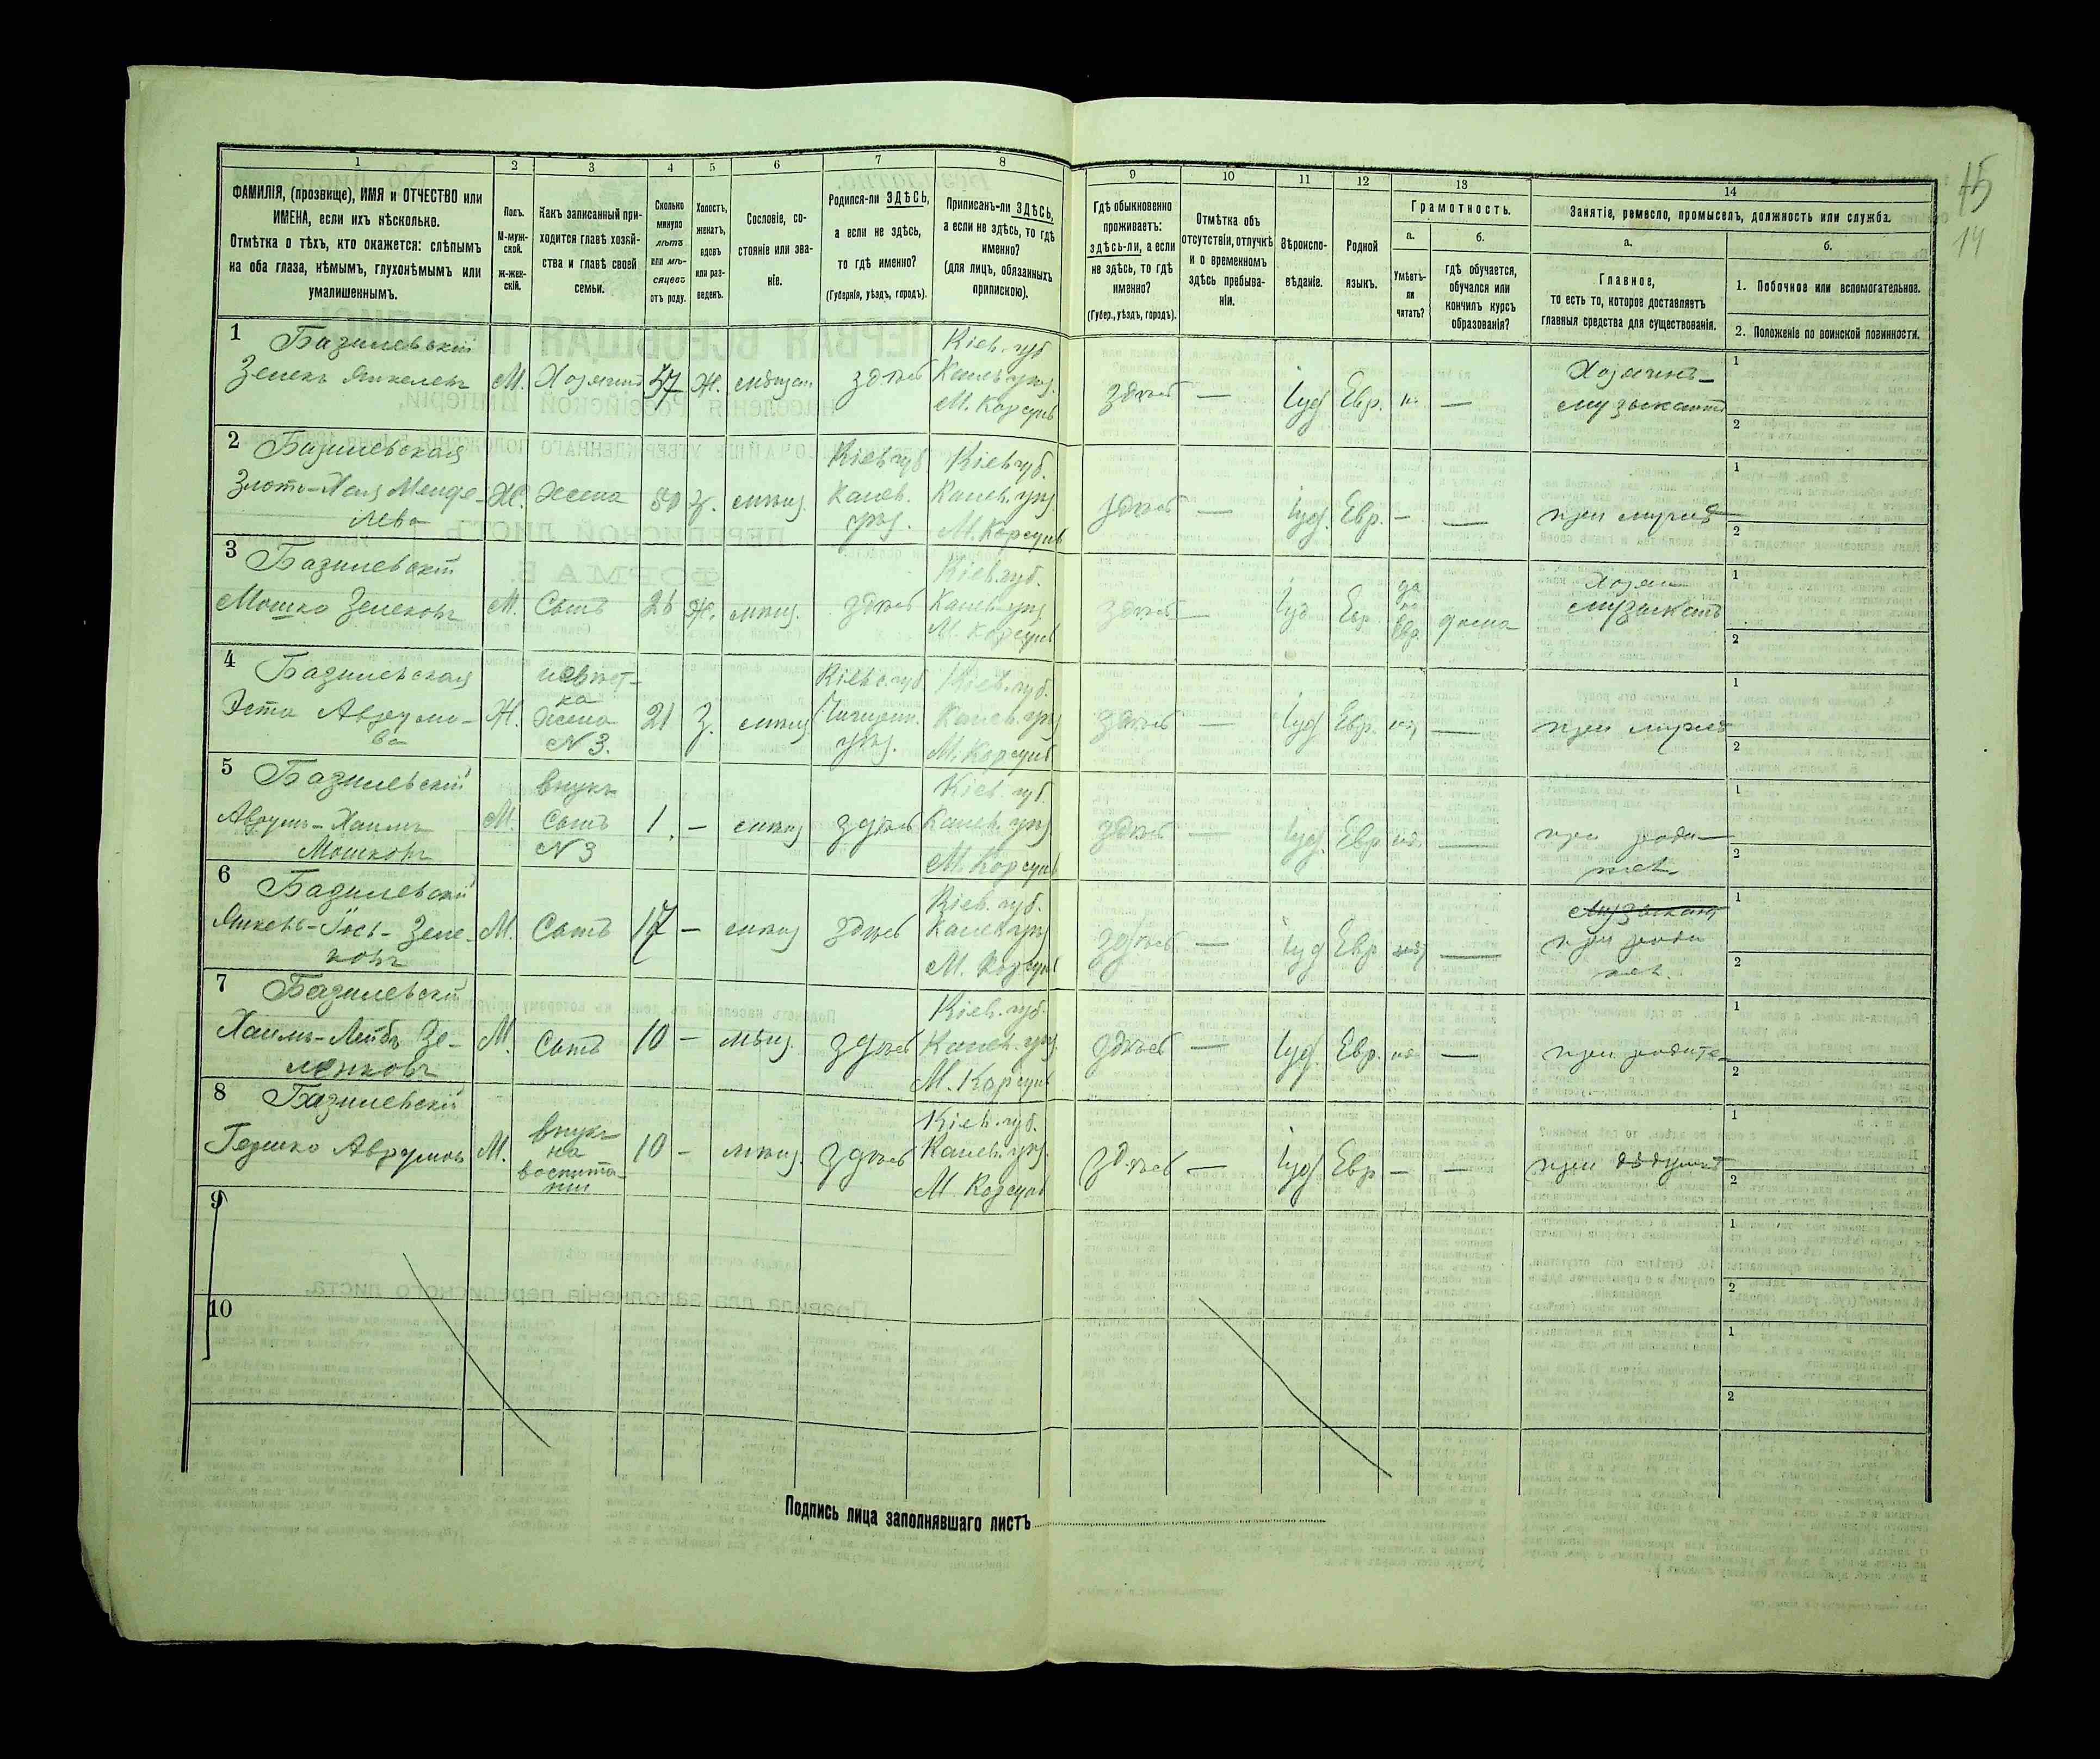 1 2 3 4 5 6 7 8 9 10 11 12 13 14
45
14
ФАМИЛІЯ, (прозвище), ИМЯ и ОТЧЕСТВО или
ИМЕНА, если ихъ нѣсколько.
Отмѣтка о тѣхъ, кто окажется: слѣпымъ
на оба глаза, нѣмымъ, глухонѣмымъ или
умалишеннымъ.
Полъ.
М-муж-
ской.
Ж-жен-
скій.
Какъ записанный при-
ходится главѣ хозяй-
ства и главѣ своей
семьи.
Сколько
минуло
лѣтъ
или мѣ-
сяцевъ
отъ роду.
Холостъ,
женатъ,
вдовъ
или раз-
веденъ.
Сословіе, со-
стояніе или зва-
ніе.
Родился-ли ЗДѢСЬ,
а если не здѣсь,
то гдѣ именно?
(Губернія, уѣздъ, городъ).
Приписанъ-ли ЗДѢСЬ,
а если не здѣсь, то гдѣ
именно?
(для лицъ, обязанныхъ
припискою).
Гдѣ обыкновенно
проживаетъ:
здѣсь-ли, а если
не здѣсь, то гдѣ
именно?
(Губер., уѣздъ, городъ).
Отмѣтка объ
отсутствіи, отлучкѣ
и о временномъ
здѣсь пребыва-
ніи.
Вѣроиспо-
вѣданіе.
Родной
языкъ.
Грамотность.
а.
Умѣетъ-
ли
читать?
б.
гдѣ обучается,
обучался или
кончилъ курсъ
образованія?
Занятіе, ремесло, промыселъ, должность или служба.
а.
Главное,
то есть то, которое доставляетъ
главныя средства для существованія.
б.
1. Побочное или вспомогательное.
2. Положеніе по воинской повинности.
1 Базилевскій
Зелекъ Янкелевъ
М.
Хозяинъ
57
Ж.
мѣщан
здѣсь
Кіев. губ
Канев. уѣз.
М. Корсунь
здѣсь
—
Іуд
Евр.
—
Хозяинъ
музыкантъ
1
2
2 Базилевская
Злота-Хая Менде-
лева
Ж.
жена
50
З.
мѣщ.
Кіев губ.
Канев.
уѣз.
Кіев губ.
Канев. уѣз.
М. Корсунь
здѣсь
—
Іуд.
Евр.
—
—
при мужѣ
1
2
3 Базилевскій
Мошко Зелековъ
М.
Сынъ
26
Ж.
мѣщ.
здѣсь
Кіев. губ.
Канев. уѣз.
М. Корсунь
здѣсь
—
Іуд
Евр
да
по
Евр.
дома
музыкантъ
1
2
4 Базилевская
Эста Аврумо-
ва
Ж.
невѣст-
ка
жена
N 3.
21
З.
мѣщ
Кіевс. губ
Чигирин.
уѣз.
Кіев. губ.
Канев. уѣз
М. Корсунь
здѣсь
—
Іуд
Евр.
—
при мужѣ
1
2
5 Базилевскій
Аврумъ-Хаимъ
Мошковъ
М.
внукъ
Сынъ
N 3
1.
—
мѣщ
здѣсь
Кіев. губ.
Канев. уѣз
М. Корсунь
здѣсь
—
Іуд.
Евр
—
при роди-
тел.
1
2
6 Базилевскій
Янкель-Іось- Зеле-
ковъ
М.
Сынъ
17
—
мѣщ
здѣсь
Кіев. губ.
Канев уѣз
М. Корсунь
здѣсь
—
Іуд
Евр
—
музыкант
при роди
тел.
1
2
7 Базилевскій
Хаимъ-Лейбъ Зе-
лековъ
М.
Сынъ
10
—
мѣщ.
здѣсь
Кіев. губ.
Канев. уѣз.
М. Корсунь
здѣсь
—
Іуд.
Евр.
—
при родите
1
2
8 Базилевскій
Гершко Аврумов
М.
внукъ
на
воспита-
ніи
10
—
мѣщ.
здѣсь
Кіев. губ.
Канев. уѣз.
М Корсунь
здѣсь
—
Іуд
Евр
—
—
при дѣдушкѣ
1
2
9
1
2
10
1
2
Подпись лица заполнявшаго листъ